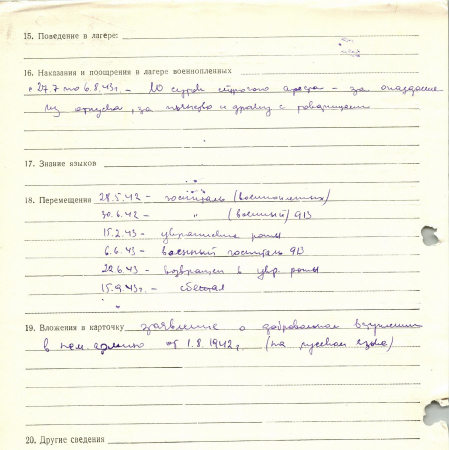 15. Поведение в лагере:
16. Наказания и поощрения в лагере военнопленных
с 27.7 по 6.8.43г. - 10 суток строгого ареста - за опоздание
из отпуска, за пьянство и драку с
17. Знание языков
18. Перемещения 28.5.42 - госпиталь (военнопленных)
30.6.42 - " (военный) 913
15.2.43 - укр. роты
6.6.43 - военный госпиталь 913
22.6.43 - возвращен в укр. роты
15.9.43г. - сбежал
19. Вложения в карточку заявление о добровольном вступлении
в нем. армию от 1.8.1942г. (на русском языке)
20. Другие сведения